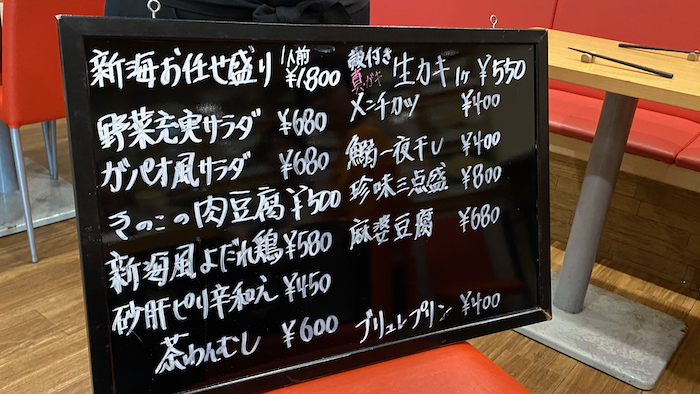 新海お任せ盛り 1人前 ¥1800
野菜充実サラダ ¥680
ガパオ風サラダ ¥680
きのこの肉豆腐 ¥500
新海風よだれ鶏 ¥580
砂肝ピリ辛和え ¥450
茶わんむし ¥600
殻付き 真ガキ 生カキ 1ヶ ¥550
メンチカツ ¥400
一夜干し ¥400
珍味三点盛 ¥800
麻婆豆腐 ¥680
ブリュレプリン ¥400